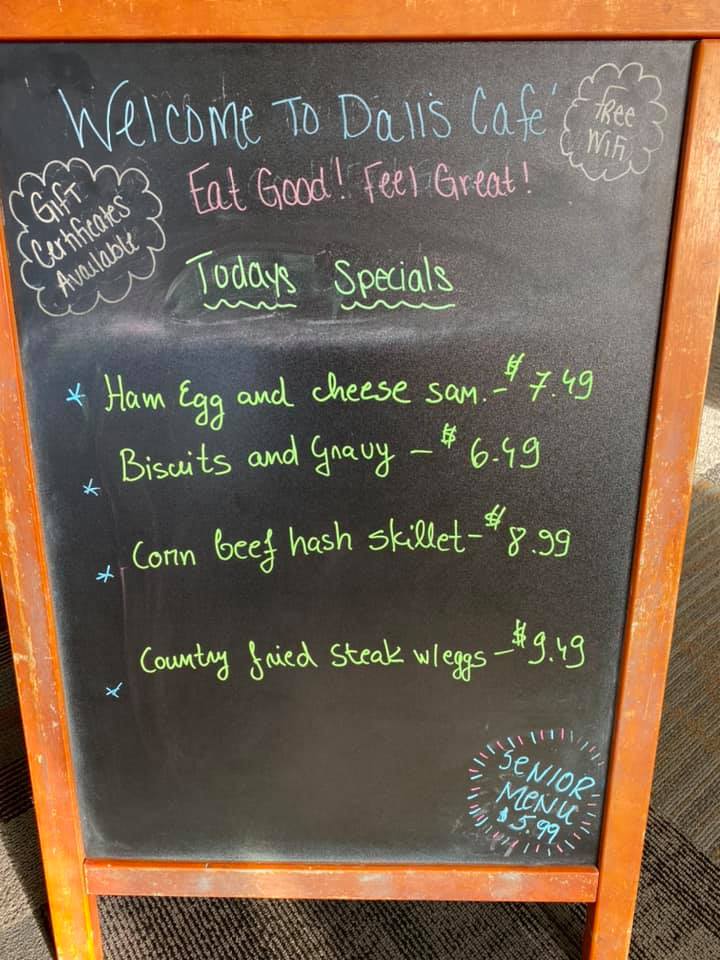 Welcome To Dalls Café
Free
WiFi
Eat Good! Feel Great!
Gift
Certificates
Available
Todays Specials
* Ham Egg and cheese sam. - $7.49
* Biscuits and Gravy - $6.49
* Corn beef hash skillet - $8.99
* Country fried steak w/eggs - $9.49
SENIOR
MENU
$5.99